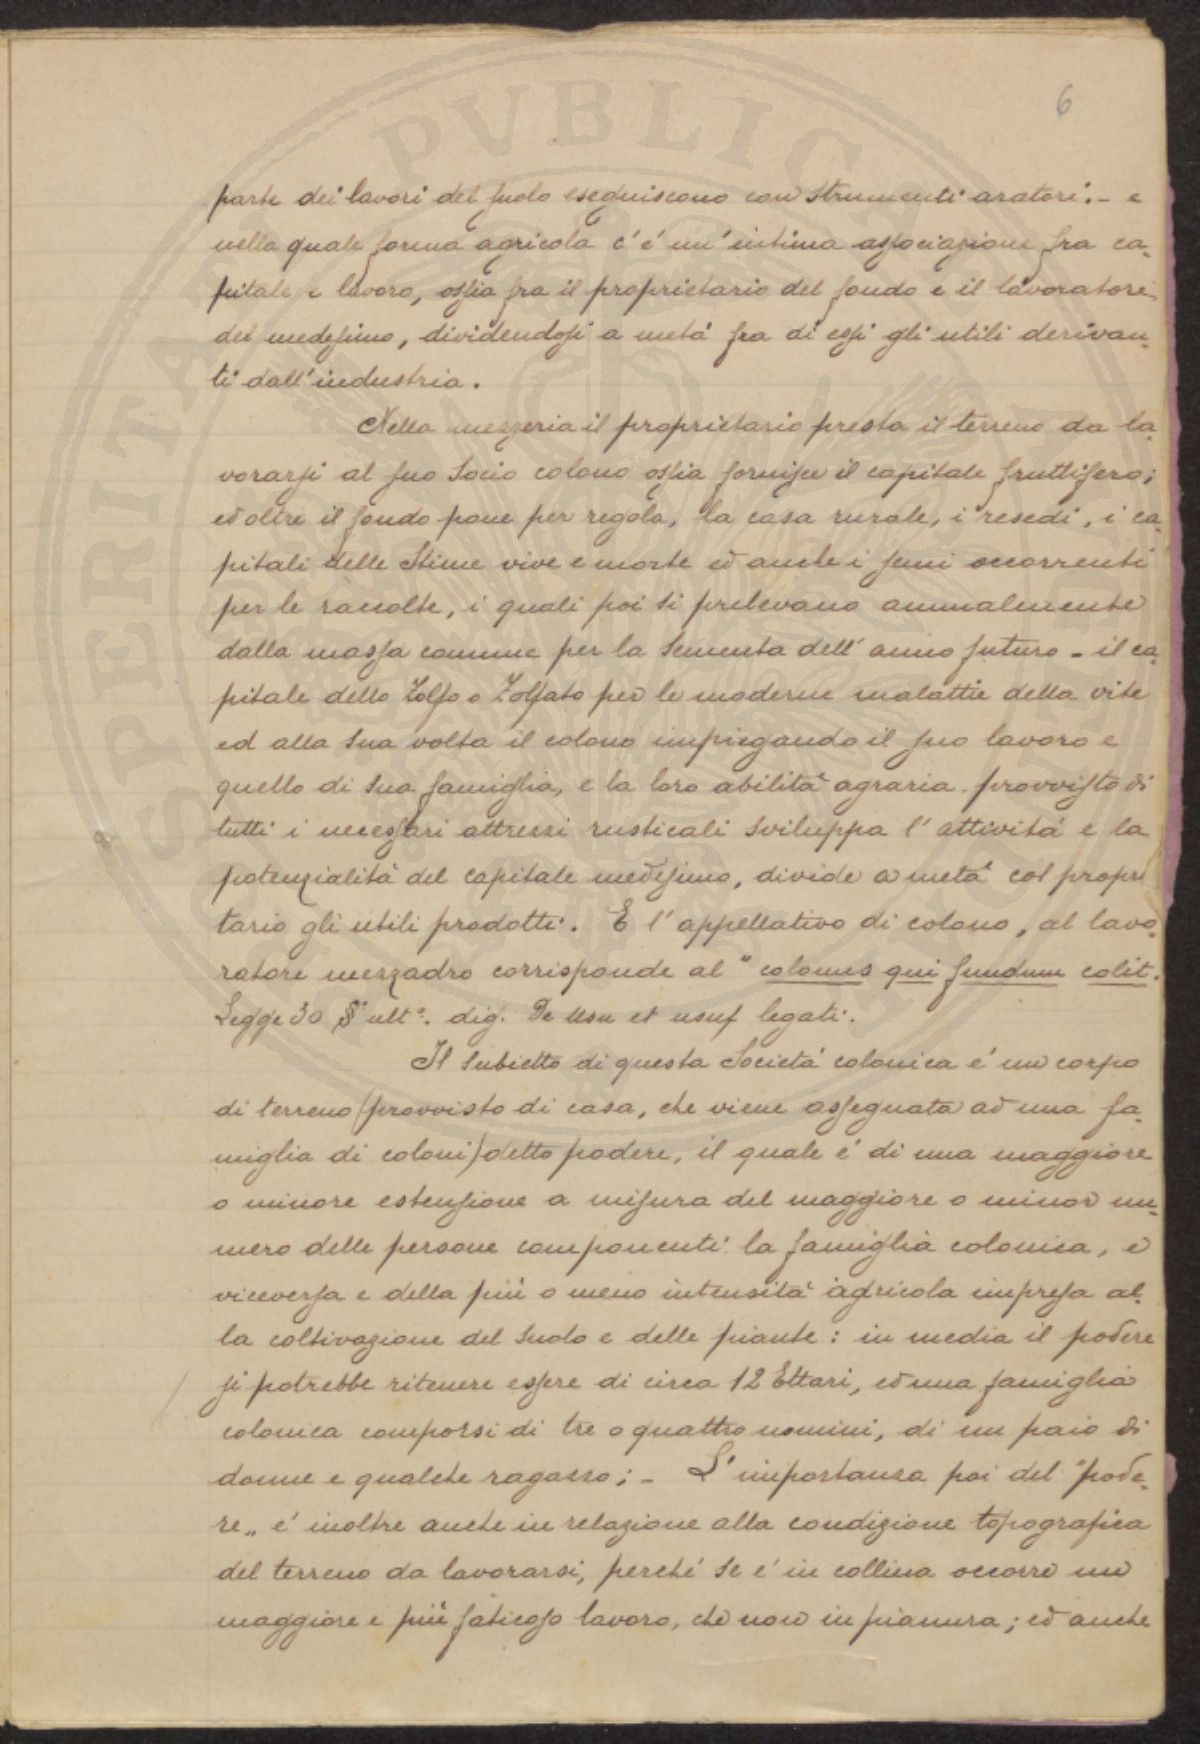 6
parte dei lavori del suolo eseguiscono con strumenti aratori. - e
nella quale forma agricola c'é un'intima associazione fra ca-
pitale e lavoro, ossia fra il proprietario del fondo e il lavoratore
del medesimo, dividendosi a metá fra di essi gli utili derivan-
ti dall'industria.
Nella mezzeria il proprietario presta il terreno da la-
vorarsi al suo Socio colono ossia fornisce il capitale fruttifero;
ed oltre il fondo pone per regola, la casa rurale, i resedi, i ca-
pitali delle Stime vive e morte ed anche i semi occorrenti
per le raccolte, i quali poi si prelevano annualmente
dalla massa comune per la Sementa dell'anno futuro - il ca-
pitale dello Zolfo o Zolfato per le moderne malattie della vite
ed alla sua volta il colono impiegando il suo lavoro e
quello di sua famiglia, e la loro abilitá agraria. provvisto di
tutti i necessari attrezzi rusticali sviluppa l'attivitá e la
potenzialitá del capitale medesimo, divide a metá col propri
tario gli utili prodotti. E l'appellativo di colono, al lavo-
ratore mezzadro corrisponde al "colonus qui fundum colit.
Legge 30 § ult°. dig. De usu et usuf legati.
Il Subietto di questa Societá colonica é un corpo
di terreno (provvisto di casa, che viene assegnata ad una fa-
miglia di coloni) detto podere, il quale é di una maggiore
o minore estensione a misura del maggiore o minor nu-
mero delle persone componenti la famiglia colonica, e
viceversa e della piú o meno intensitá agricola impresa al-
la coltivazione del suolo e delle piante: in media il podere
si potrebbe ritenere essere di circa 12 Ettari, ed una famiglia
colonica comporsi di tre o quattro uomini, di un paio di
donne e qualche ragazzo; - L'importanza poi del "pode-
re„ é inoltre anche in relazione alla condizione topografica
del terreno da lavorarsi, perché se é in collina occorre un
maggiore e piú faticoso lavoro, che non in pianura; ed anche